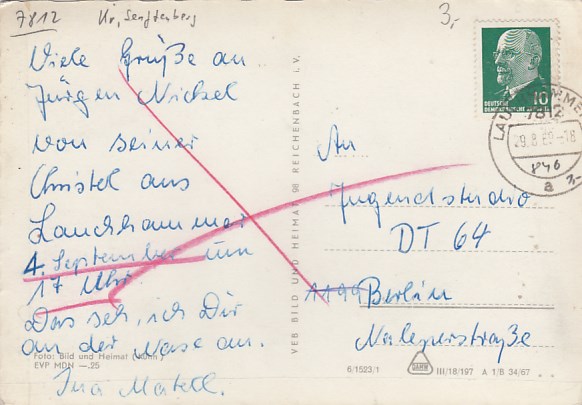 7812 Kr. Senftenberg
3,-
Viele Grüße an
Jürgen Nickel
von seiner
Christel aus
Lauchhammer
4. September um
17 Uhr
Das seh, ich Dir
an der Nase an.
Ina Martell.
Foto: Bild und Heimat
EVP MDN —.25
VEB BILD UND HEIMAT 98 REICHENBACH i. V.
DEUTSCHE
DEMOKRATISCHE
10
LAUCHHAMMER
7812
29.8.68-18
a
846
3,-
An
Jugendstudio
DT 64
1199 Berlin
Nalepastraße
6/1523/1
III/18/197 A 1/B 34/67